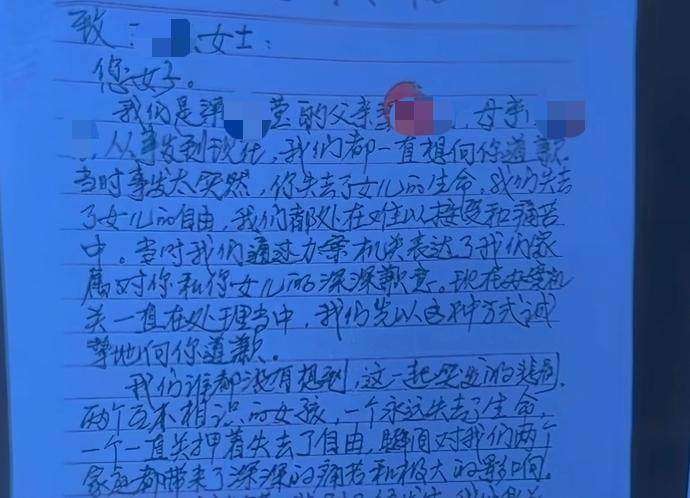 致：女士：
您好。
我们是莹的父亲，母亲
从事发到现在，我们都一直想向你道歉
当时事发太突然，你失去了女儿的生命，我们失去
了女儿的自由，我们都处在难以接受和痛苦
中。当时我们通过办案机关表达了我们家
属对你和你女儿的深深歉意。现在办案机
关一直在处理当中，我们先以这种方式诚
挚地向你道歉。
我们谁都没有想到，这一起突发的悲剧，
两个互不相识的女孩，一个永远失去了生命，
一个一直关押着失去了自由，瞬间对我们两个
家庭都带来了深深的痛苦和极大的影响。